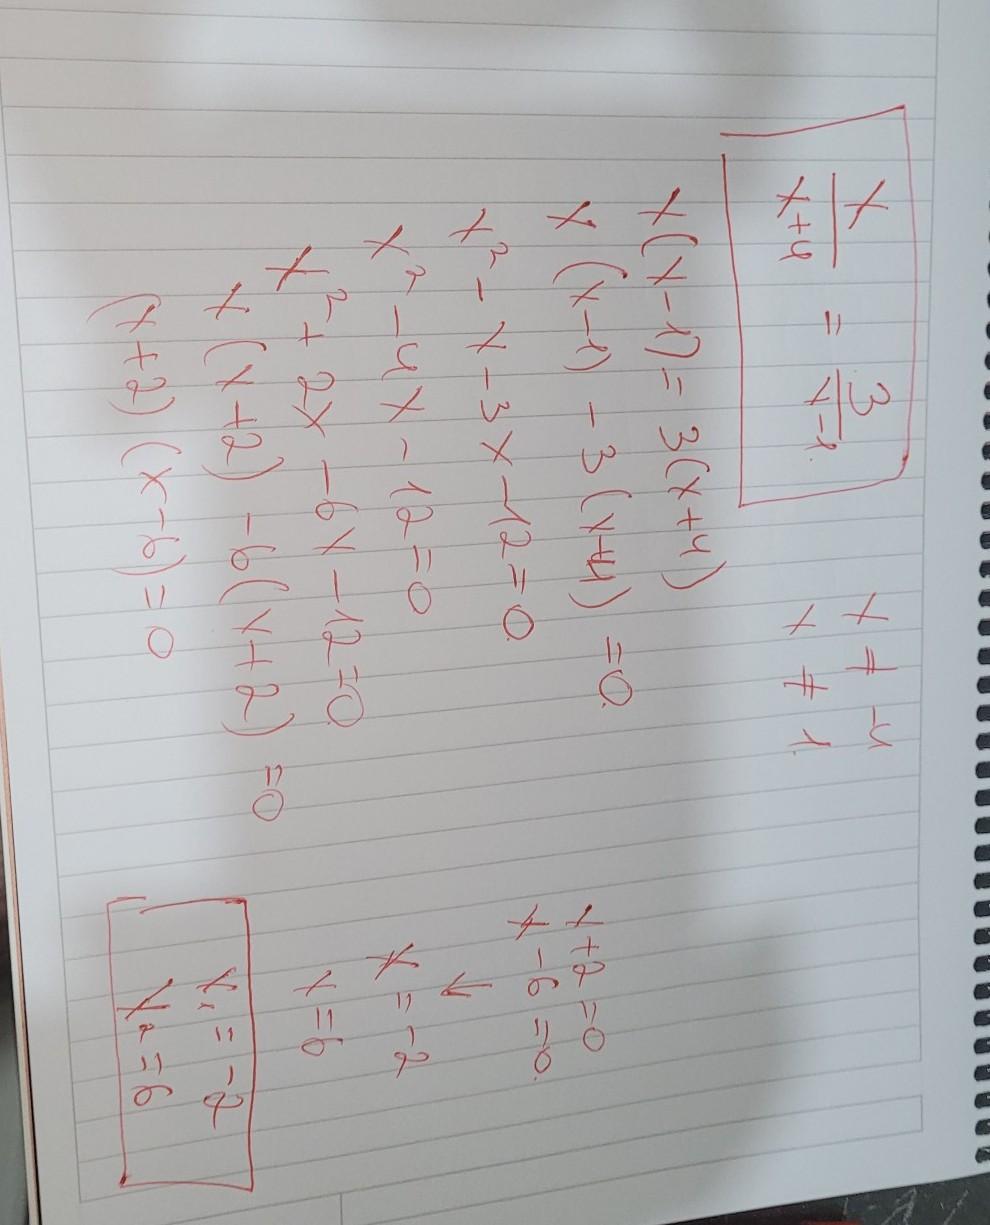 x/x+4 = 3/x-1
x ≠ -4
x ≠ 1
x(x-1) = 3(x+4)
x (x-1) - 3(x+4) = 0
x² - x - 3x - 12 = 0
x² - 4x - 12 = 0
x² + 2x - 6x - 12 = 0
x (x+2) - 6(x+2) = 0
(x+2) (x-6) = 0
x+2 = 0
x-6 = 0
↓
x = -2
x = 6
x₁ = -2
x₂ = 6